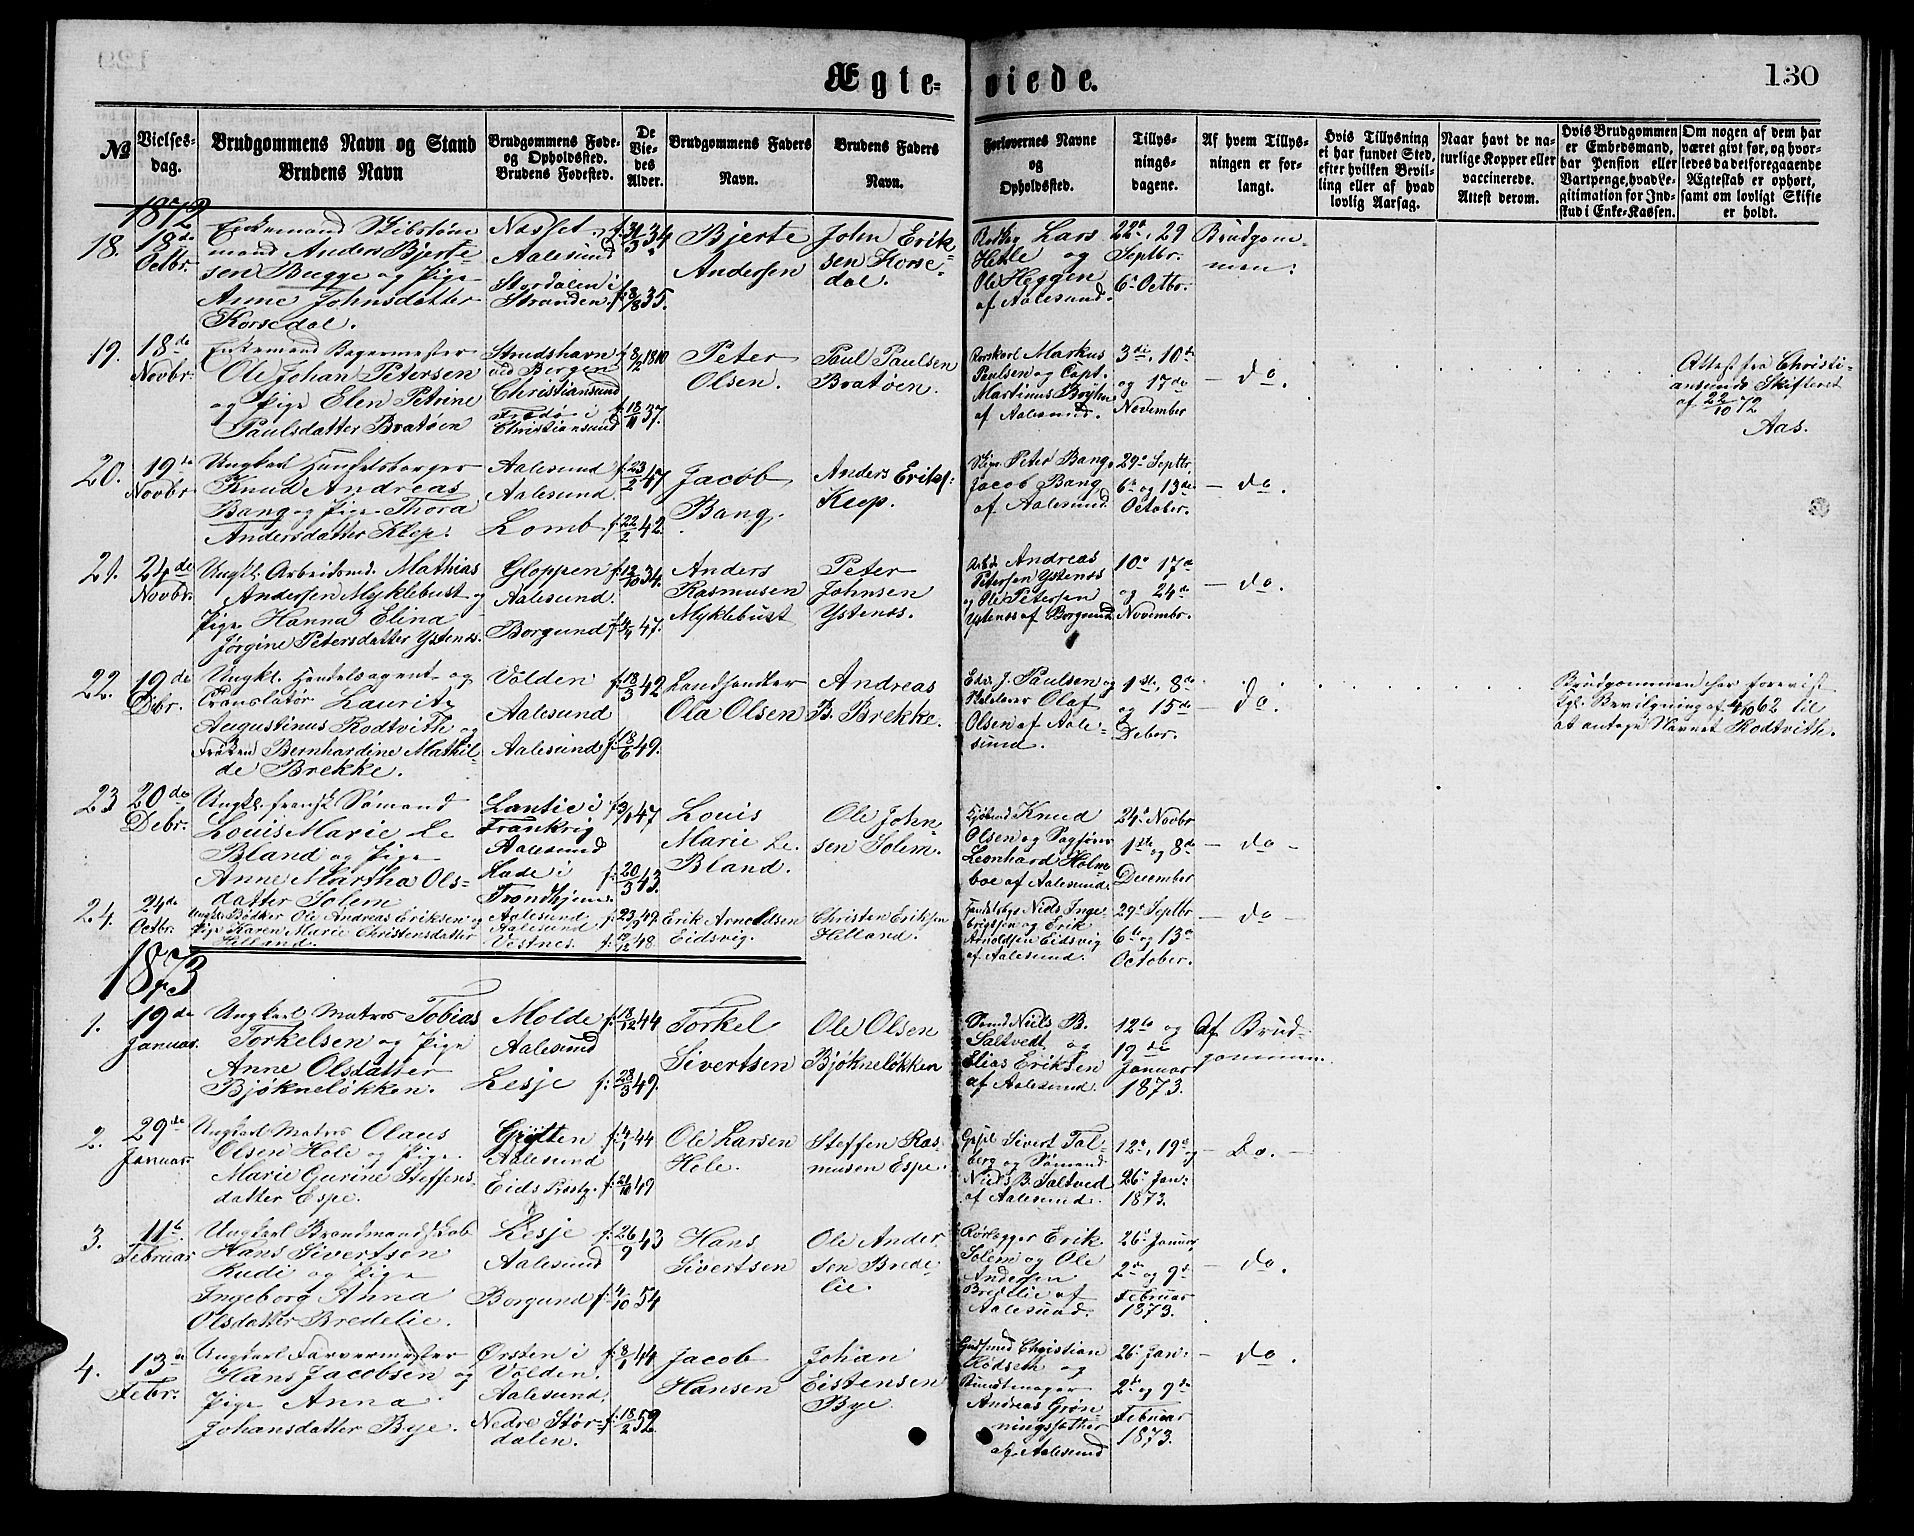 Ægte= viede.
130
No
Vielses-
dag.
Brudgommens Navn og Stand
Brudens Navn
Brudgommens Føde-
og Opholdssted.
Brudens Fødested.
De
Vie-
des
Alder.
Brudgommens Faders
Navn.
Brudens Faders
Navn.
Forlovernes Navne
og
Opholdssted.
Tillys-
nings-
dagene.
Af hvem Tillys-
ningen er for-
langt.
Hvis Tillysning
ei har fundet Sted,
efter hvilken Bevil-
ling eller af hvad
lovlig Aarsag.
Naar havt de na-
turlige Kopper eller
vaccinerede.
Attest derom.
Hvis Brudgommen
er Embedsmand,
har Pension eller
Vartpenge, hvad Le-
gitimation for Ind-
skud i Enke-Kassen.
Om nogen af dem har
været givt før, og hvor-
ledes da det foregaaende
Ægteskab er ophørt,
samt om lovligt Skifte
er holdt.
1872
18.
18de
Octbr.
Enkemand Skibstøm
mand Anders Bjerte-
sen Bugge og Pige
Anne Johnsdatter
Korsedal.
Nasset
Aalesund
Stordalen i
Stranden.
f. 31/3 34
f. 8/8 35.
Bjerte
Andersen
John Erik
sen Korse-
dal.
Lars
Hetle og
Ole Heggen
af Aalesund.
22de, 29
Septbr.
6te Octbr.
Brudgom-
men.
19.
18de
Novbr.
Enkemand Bagermester
Ole Johan Petersen
og Pige Elen Petrine
Paulsdatter Bratøen
Strudshavn
ved Bergen
Christiansund
Fredø i
Christiansund
f. 8/12 1810
f. 18/11 37.
Peter
Olsen.
Paul Paulsen
Bratøen.
Markus
Paulsen og Capt.
Martinus
af Aalesund.
3die, 10de
og 17de
November
— do.
Attest fra Christi-
ansunds Skifteret
af 22/10 72
Aas.
20.
19de
Novbr.
Ungkarl Handelsborger
Knud Andreas
Bang og Pige Thora
Andersdatter Klep.
Aalesund
Aalesund.
Lomb
f. 23/2 47
f. 22/2 42.
Jacob
Bang.
Anders Eriks.
Klep.
Peter Bang.
Jacob Bang
af Aalesund
29de Septbr.
6te og 13de
October.
— do.
21.
24de
Novbr.
Ungkl. Arbeidsmd. Mathias
Andersen Myklebust og
Pige Hanna Elina
Jørgine Petersdatter Ystenes.
Gloppen
Aalesund.
Borgund
f. 12/10 34.
f. 4/4 47.
Anders
Rasmusen
Myklebust
Peter
Johnsen
Ystenes.
Andreas
Petersen Ystenes
og Ole Petersen
Ystenes af Borgund.
10de 17de
og 24de
Novembr.
— do.
22.
19de
Dcbr.
Ungkl. Handelsagent og
Translatør Lauritz
Augustinus Rodtvith og
Frøken Bernhardine Mathil-
de Brekke.
Volden
Aalesund
Aalesund
f. 18/3 42
f. 18/6 49.
Landhandler
Ola Olsen
Andreas
B. Brekke.
J. Paulsen og
Olaf
Olsen af Aale-
sund.
1ste, 8de
og 15de
Debr.
— do.
Brudgommen har forevist
Kgl. Bevilgning af 4/10 62 til
at antage Navnet Rodtvith.
23
20de
Debr.
Ungkl. fransk Sømand
Louis Marie Le
Bland og Pige
Anne Martha Ols-
datter Solem
Lantic i
Frankrig
Aalesund
Lade i
Trondhjem
f. 3/1 47
f. 20/3 43.
Louis
Marie Le
Bland.
Ole John-
sen Solem.
Knud
Olsen og Sagfører
Leonhard Holm-
boe af Aalesund.
24de Novbr
1ste og 8de
December
— do —
24.
24de
Octbr.
Ungkl. Bødker Ole Andreas Eriksen og
Pige Karen Marie Christensdatter
Helland.
Aalesund
Aalesund
Vestnes.
f. 23/9 49.
f. 19/12 48.
Erik Arnoldsen
Eidsvig.
Christen Eriksen
Helland.
Nids Inge-
brigtsen og Erik
Arnoldsen Eidsvig
af Aalesund.
29de Septbr
6te og 13de
October.
— do —
1873
1.
19de
Januar.
Ungkarl Matros Tobias
Torkelsen og Pige
Anne Olsdatter
Bjøkneløkken.
Molde
Aalesund
Lesje
f. 18/12 44
f. 28/3 49.
Torkel
Sivertsen
Ole Olsen
Bjøkneløkken
Niels B.
Saltvedt og
Elias Eriksen
af Aalesund.
12te og
19de
Januar
1873.
Af Brud-
gommen
2.
29de
Januar
Ungkarl Matros Olaus
Olsen Hole og Pige
Marie Gurine Steffens-
datter Espe.
Grytten
Aalesund
Eids Præstg.
f. 4/1 44
f. 21/10 49
Ole Larsen
Hole.
Steffen Ras-
musen Espe.
Sivert Tal-
berg og Sømand
Niels B. Saltved
af Aalesund.
12te, 19de og
26de Jan:
1873.
— Do. —
3.
11te
Februar
Ungkarl
Hans Sivertsen
Rudi og Pige
Ingeborg Anna
Olsdatter Bredelie.
Lesje
Aalesund
Borgund
f. 26/9 43
f. 4/10 54
Hans
Sivertsen
Ole Ander
sen Brede-
lie.
Rørlægger Erik
Solem og Ole
Andersen
Bredelie af
Aalesund.
26de Januar
2den og 9de
Februar
1873.
— do.
4.
13de
Febr.
Ungkarl Farvermester
Hans Jacobsen og
Pige Anna
Johansdatter Bye.
Ørsten i
Volden.
Aalesund.
Nedre Stør-
dalen.
f. 8/1 44
f. 18/2 52.
Jacob
Hansen
Johan
Eistensen
Bye
Christian
Rødseth og
Buntmager
Andreas Grøn-
ningsæther
af Aalesund
26de Jan:
2den og 9de
Februar
1873.
— do.